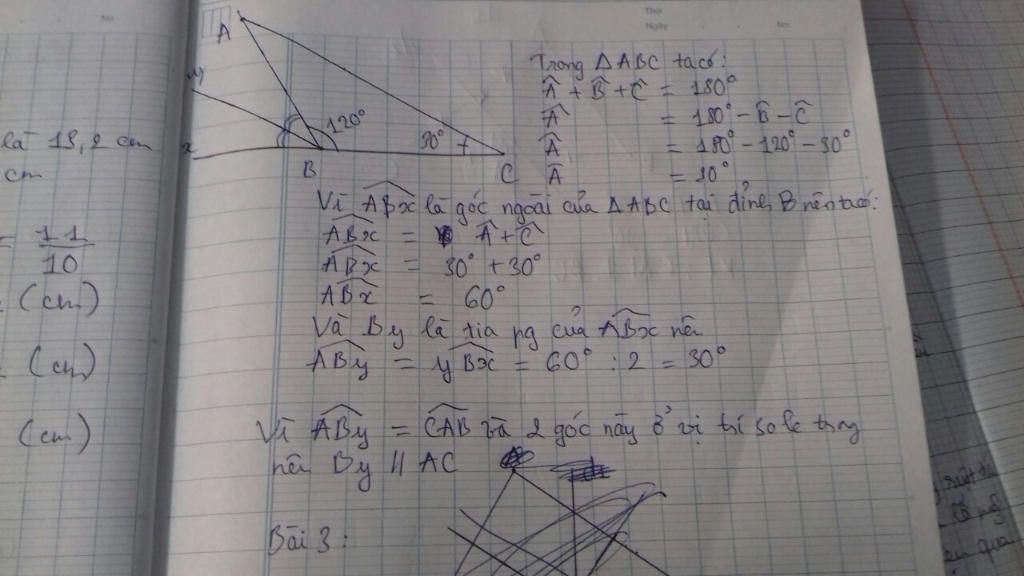 No
Thứ
Ngày
No.
A
y
x
B
C
120°
30°
là 13,2 cm
cm
= 11
10
(cm)
(cm)
(cm)
Trong ΔABC ta có:
Â + B̂ + Ĉ = 180°
Â = 180° - B̂ - Ĉ
Â = 180° - 120° - 30°
Â = 30°
Vì ABx là góc ngoài của ΔABC tại đỉnh B nên ta có:
ABx = Â + Ĉ
ABx = 30° + 30°
ABx = 60°
Và By là tia pg của ABx nên
ABy = yBx = 60° : 2 = 30°
Vì ABy = CAB và 2 góc này ở vị trí so le trong
nên By // AC
Bài 3: